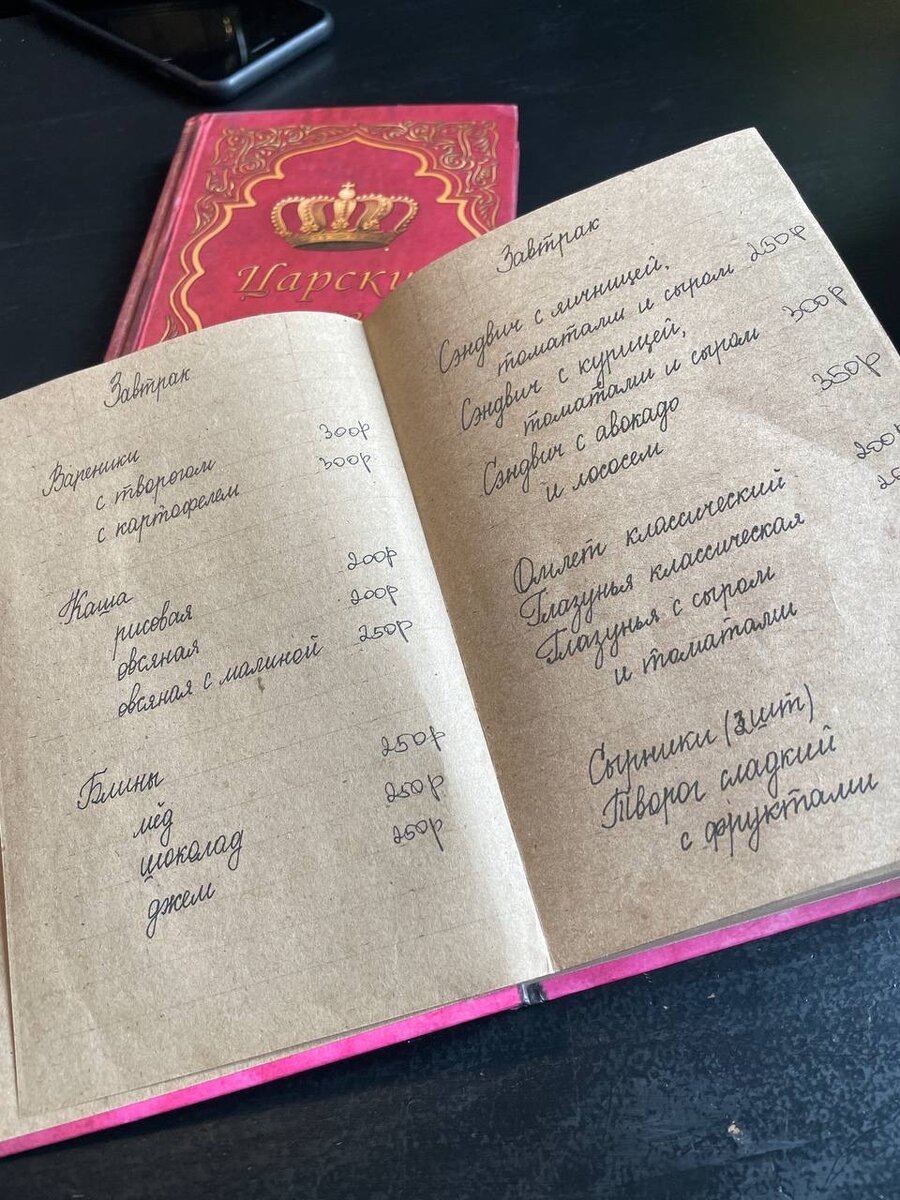 Царски
Завтрак
Вареники
с творогом 300р
с картофелем 300р
Каша
рисовая 200р
овсяная 200р
овсяная с малиной 250р
Блины
мёд 250р
шоколад 250р
джем 250р
Завтрак
Сэндвич с яичницей,
томатами и сыром 250р
Сэндвич с курицей,
томатами и сыром 300р
Сэндвич с авокадо
и лососем 350р
Омлет классический 200р
Глазунья классическая
Глазунья с сыром
и томатами
Сырники (3шт)
Творог сладкий
с фруктами